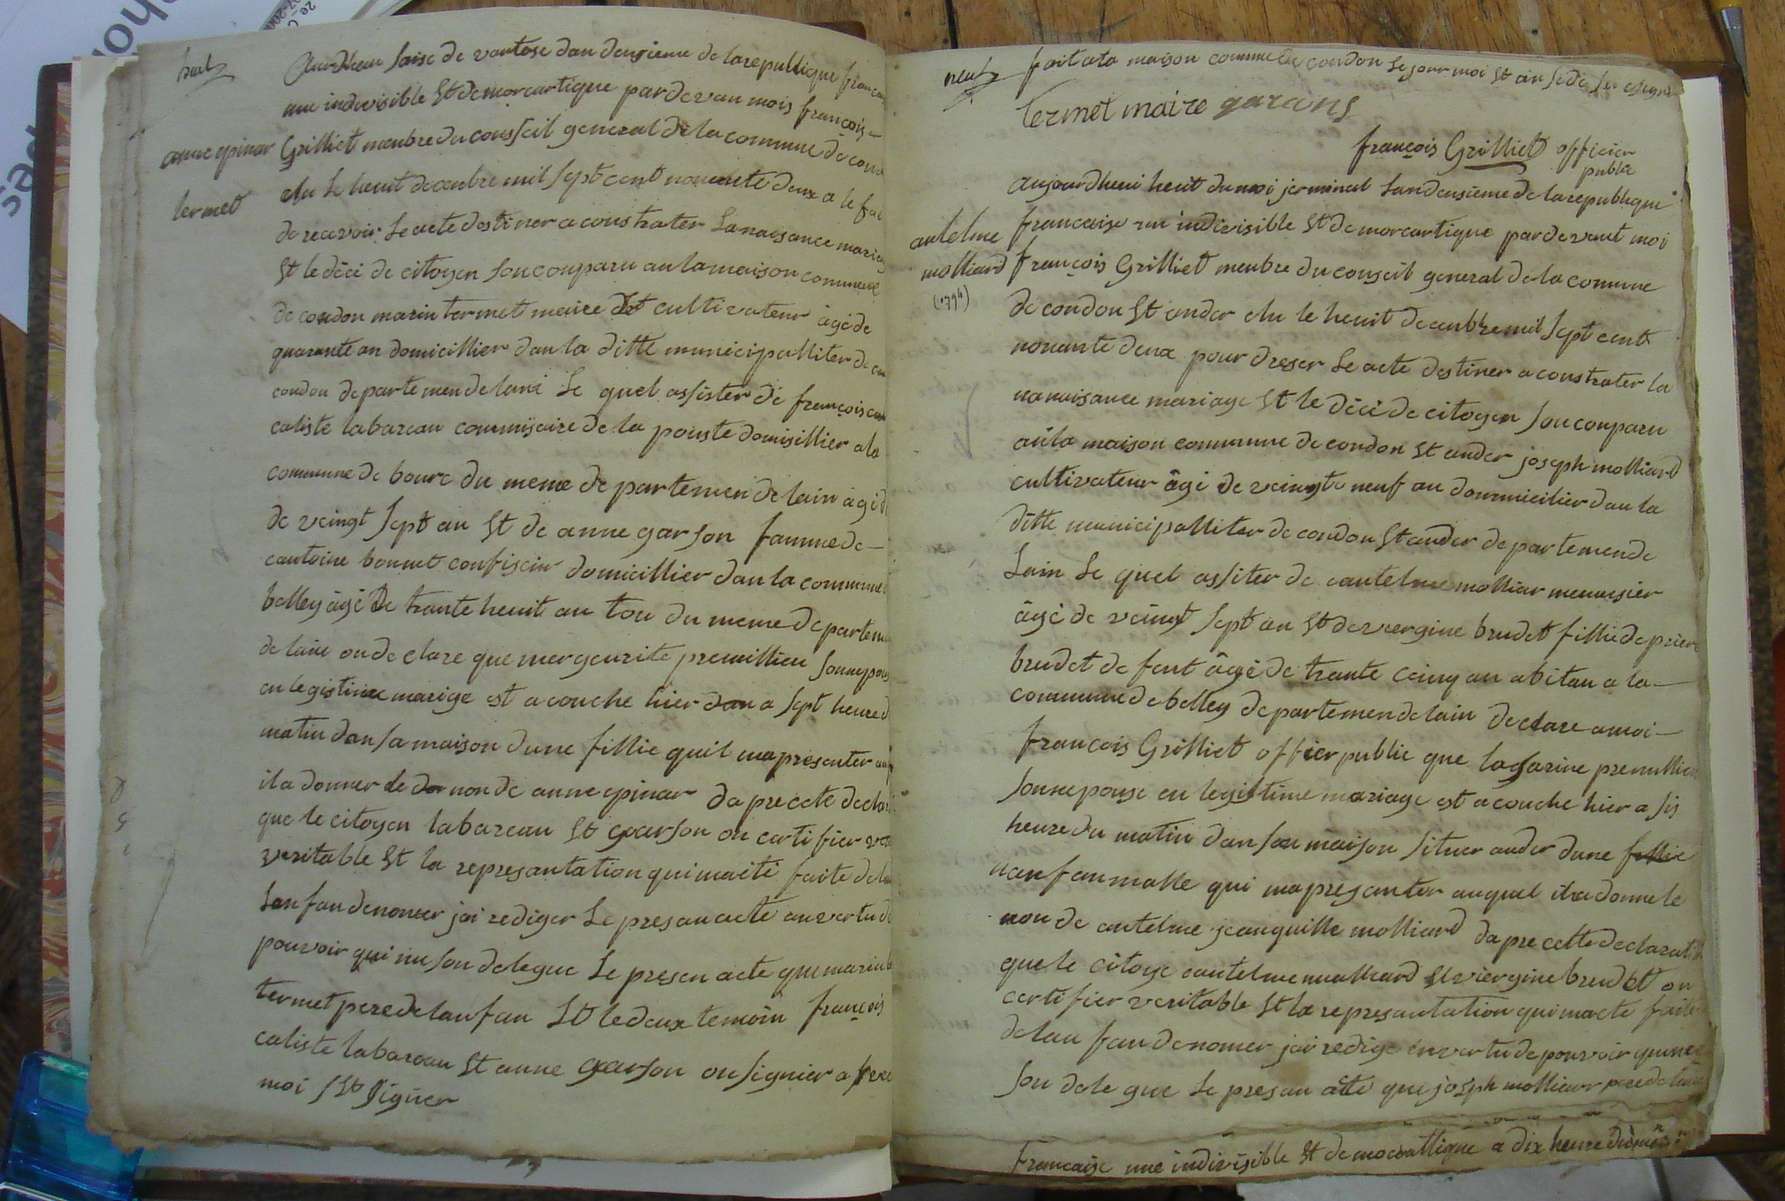 Aujordheui saise de vantose dan deuxieme de la republique francai
une indivisible St demorcartique par de van mois françois
anne epinar
Grilliet menbre du conseil general de la commune de con
elu le heuit decenbre mil sept cent nonente deux a le fai
termet
de recevoir le acte destiner a constrater la naisance mariag
St le déci de citoyen son conparu an la maison commune
de condon marin termet maire et cultivateur âgé de
quarante an domicillier dan la ditte municipalliter de
condon departemen de lain le quel assister de françois
caliste labareau commisaire de la pouste domisillier a la
commune de bourc du meme departemen de lain âgé d
de veingt sept an St de anne garson famme de
cantoine bonnet confiseur domicillier dan la commune
belley âgé de trante heuit an tou du meme departemen
de lain on declare que mergeurite premillieu son nepous
en legistime mariage est a couche hier a sept heure d
matin dan sa maison dune fillie quil ma presenter
il a donner le non de anne epinar dapre cete decla
que le citoyen labareau St garson on certifier
veritable St la represantation qui ma cté faite de l
lanfan denomer jai rediger le presan acte an vertu d
pouvoir qui me son delegue le presen acte que marin
termet pere de lanfan St le deux temoin françois
caliste labareau St anne garson on signier a vec
moi St signer
neuf
fait a la maison commune de condon le jour moi St an
Termet maire garsons
françois Grilliet officier
public
aujourdheui heuit du moi jerminal lan deusieme de la republique
antelme
molliard
(1794)
francaise un indivisible St demorcartique par devent moi
françois Grilliet menbre du conseil general de la comune
de condon St ander elu le heuit decenbre mil sept cent
nonante deux pour dreser le acte destiner a constrater la
nanaisance mariage St le déci de citoyen son conparu
an la maison commune de condon St ander joseph molliard
cultivateur âgé de veingte neuf an dommicilier dan la
ditte municipalliter de condon St ander departemen de
lain le quel assiter de cantelme molliar menuisier
âgé de veingt sept an St de vergine brudet fillie de piere
brudet de fent âgé de trante cinq an abitan a la
commune de belley departemen de lain declare a moi
françois Grilliet officier public que lagarine premillieu
son nepouse en legistime mariage est a couche hier a sis
heure du matin dan son maison situer ander dune fillie
nanfan malle qui ma presanter auquel il a donne le
non de cantelme jeanguille molliard dapre cette declarati
que le citoye cantelme moalliard St viergine brudet on
certifier veritable St la represantation qui ma cte faite
de lan fan denomer jai redige en vertu de pouvoir qui me
son dele gue le presan acte que joseph molliar pere de lanfan
Francaise une indivisible St democrattique a dix heure du